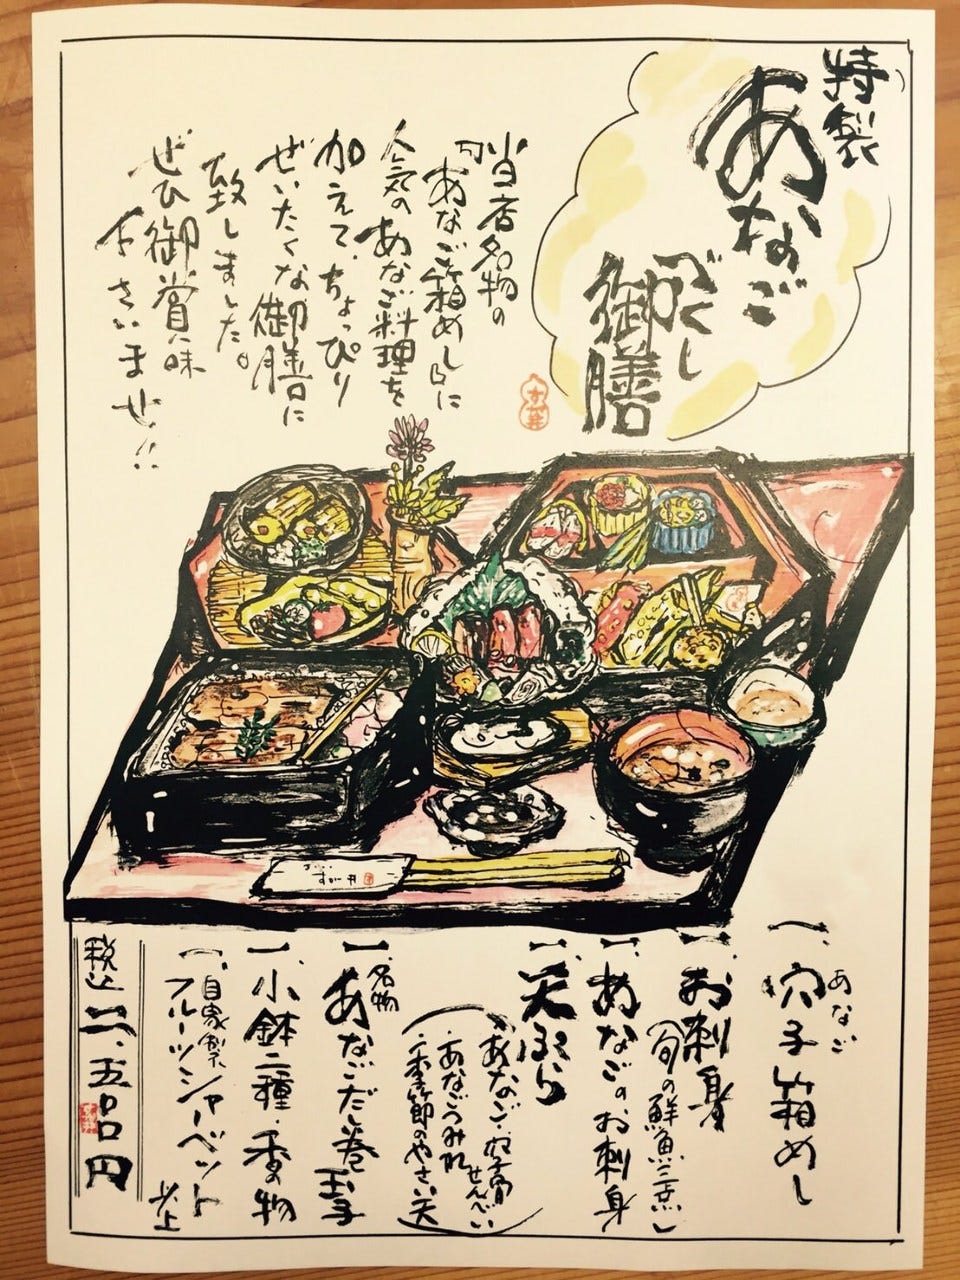 特製
あなご
づくし
御膳
当店名物の
「あなご箱めし」に
人気のあなご料理を
加えて、ちょっぴり
ぜいたくな御膳に
致しました。
ぜひ御賞味
下さいませ!!
すが井
一、穴子箱めし
あなご
一、お刺身
(旬の鮮魚三点)
一、あなごのお刺身
一、天ぷら
(・あなご・穴子骨せんべい
・あなごつみれ
・季節のやさい天)
名物
一、あなごだし巻玉子
一、小鉢二種・香の物
一、自家製
フルーツシャーベット
以上
税込二、五〇〇円